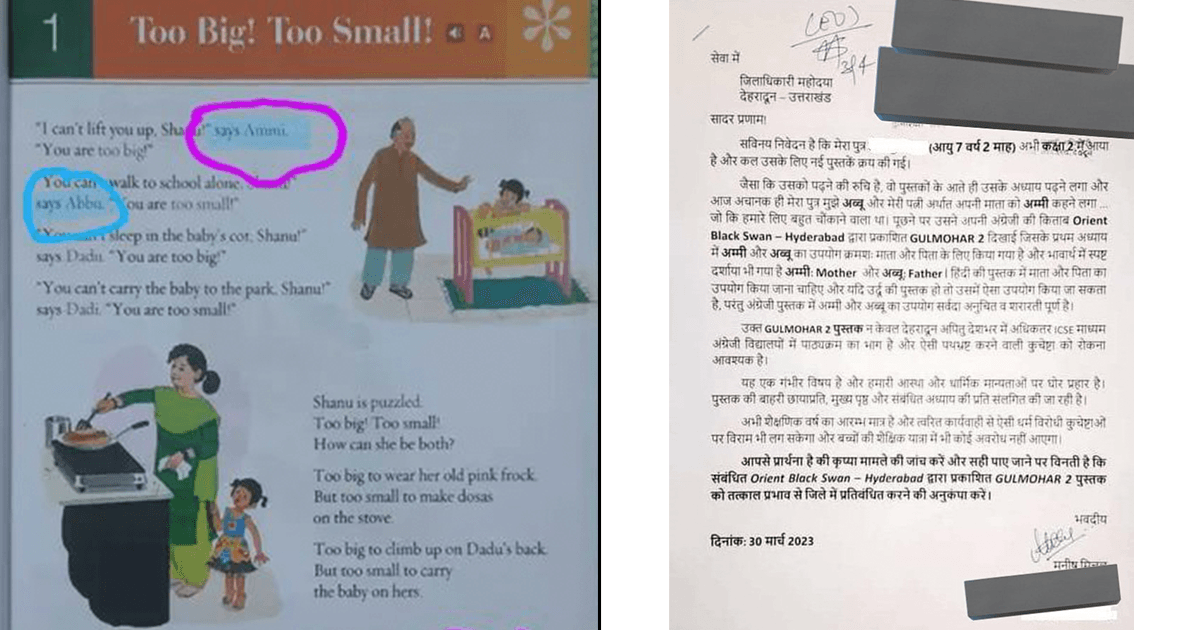 1
Too Big! Too Small!
A
"I can't lift you up, Shanu!" says Ammi.
"You are too big!"
"You can't walk to school alone,
says Abbu. "You are too small!"
sleep in the baby's cot, Shanu!"
says Dadu. "You are too big!"
"You can't carry the baby to the park, Shanu!"
says Dadi. "You are too small!"
Shanu is puzzled.
Too big! Too small!
How can she be both?
Too big to wear her old pink frock.
But too small to make dosas
on the stove.
Too big to climb up on Dadu's back.
But too small to carry
the baby on hers.
सेवा में
जिलाधिकारी महोदया
देहरादून – उत्तराखंड
सादर प्रणाम!
सविनय निवेदन है कि मेरा पुत्र (आयु 7 वर्ष 2 माह) अभी कक्षा 2 में आया
है और कल उसके लिए नई पुस्तकें क्रय की गई।
जैसा कि उसको पढ़ने की रुचि है, वो पुस्तकों के आते ही उसके अध्याय पढ़ने लगा और
आज अचानक ही मेरा पुत्र मुझे अब्बू और मेरी पत्नी अर्थात अपनी माता को अम्मी कहने लगा ...
जो कि हमारे लिए बहुत चौंकाने वाला था। पूछने पर उसने अपनी अंग्रेजी की किताब Orient
Black Swan – Hyderabad द्वारा प्रकाशित GULMOHAR 2 दिखाई जिसके प्रथम अध्याय
में अम्मी और अब्बू का उपयोग क्रमशः माता और पिता के लिए किया गया है और भावार्थ में स्पष्ट
दर्शाया भी गया है अम्मी: Mother और अब्बू: Father। हिंदी की पुस्तक में माता और पिता का
उपयोग किया जाना चाहिए और यदि उर्दू की पुस्तक हो तो उसमें ऐसा उपयोग किया जा सकता
है, परंतु अंग्रेजी पुस्तक में अम्मी और अब्बू का उपयोग सर्वदा अनुचित व शरारती पूर्ण है।
उक्त GULMOHAR 2 पुस्तक न केवल देहरादून अपितु देशभर में अधिकतर ICSE माध्यम
अंग्रेजी विद्यालयों में पाठ्यक्रम का भाग है और ऐसी पथभ्रष्ट करने वाली कुचेष्टा को रोकना
आवश्यक है।
यह एक गंभीर विषय है और हमारी आस्था और धार्मिक मान्यताओं पर घोर प्रहार है।
पुस्तक की बाहरी छायाप्रति, मुख्य पृष्ठ और संबंधित अध्याय की प्रति संलगित की जा रही है।
अभी शैक्षणिक वर्ष का आरम्भ मात्र है और त्वरित कार्यवाही से ऐसी धर्म विरोधी कुचेष्टाओं
पर विराम भी लग सकेगा और बच्चों की शैक्षिक यात्रा में भी कोई अवरोध नहीं आएगा।
आपसे प्रार्थना है की कृप्या मामले की जांच करें और सही पाए जाने पर विनती है कि
संबंधित Orient Black Swan – Hyderabad द्वारा प्रकाशित GULMOHAR 2 पुस्तक
को तत्काल प्रभाव से जिले में प्रतिबंधित करने की अनुकंपा करें।
भवदीय
दिनांक: 30 मार्च 2023
मनीष